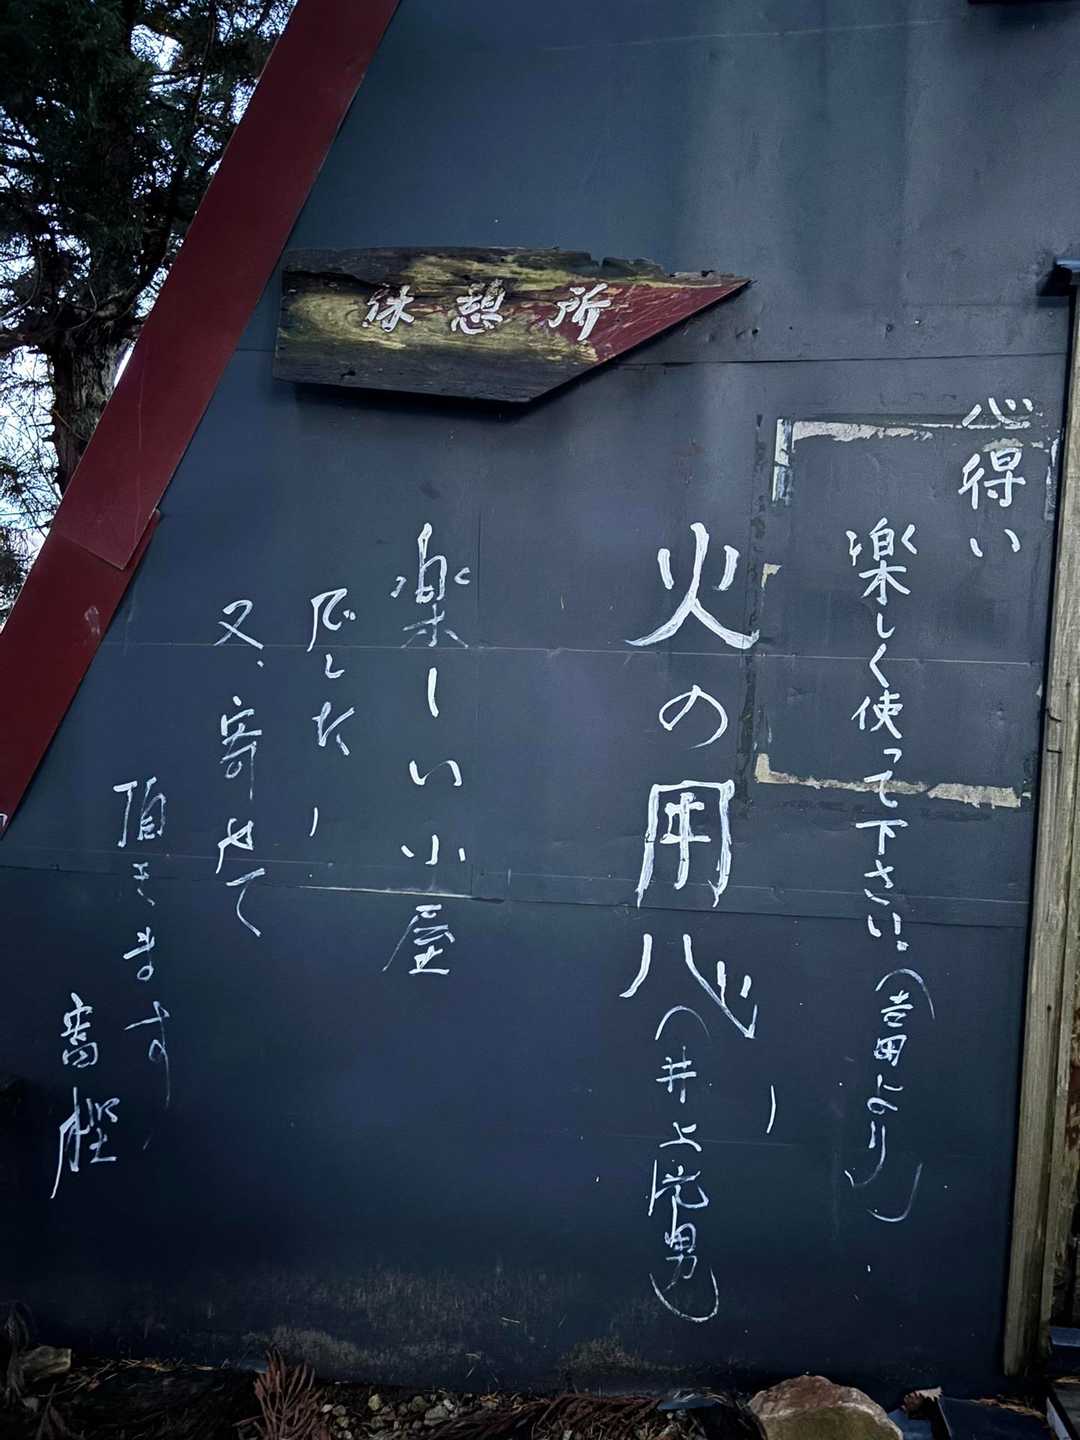 休憩所
心得い
楽しく使って下さい。(吉田より)
火の用心(井上 男)
楽しい小屋
でした
又、寄せて
頂きます